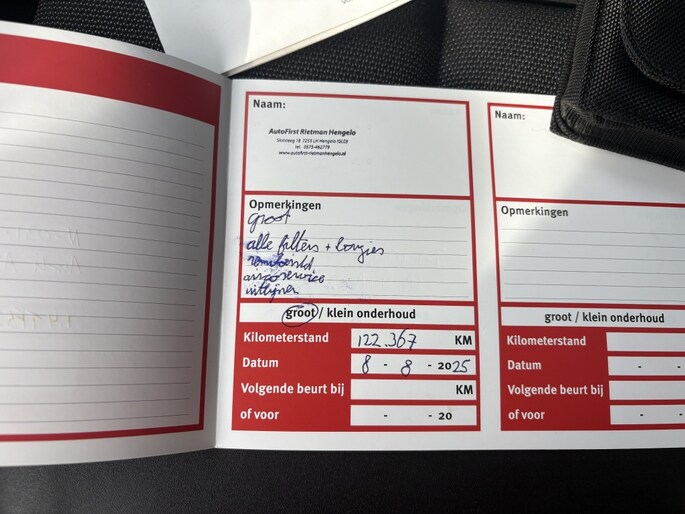 Naam:
AutoFirst Rietman Hengelo
tel. 0575-462779
www.autofirst-rietmanhengelo.nl
Opmerkingen
groot
alle filters + bougies
aircoservice
uitlijnen
groot / klein onderhoud
Kilometerstand 122.367 KM
Datum 8 - 8 - 2025
Volgende beurt bij KM
of voor - - 20
Naam:
Opmerkingen
groot / klein onderhoud
Kilometerstand
Datum - -
Volgende beurt bij
of voor - -